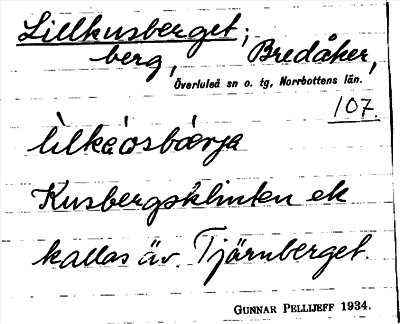 Lillkusberget;
berg, Bredåker,
Överluleå sn o. tg, Norrbottens län.
107.
Kusbergsklinten el
kallas äv. Tjärnberget.
GUNNAR PELLIJEFF 1934.